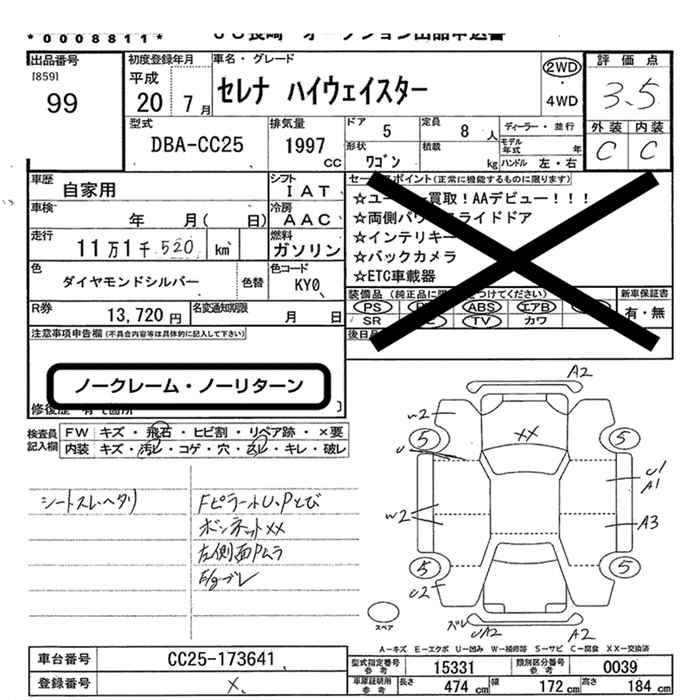 *0008811*
JU長崎 オークション出品申込書
出品番号
[859]
99
初度登録年月
平成
20 7月
車名・グレード
セレナ ハイウェイスター
2WD
・
4WD
評価点
3.5
外装 内装
C C
型式
DBA-CC25
排気量
1997
cc
ドア 5
定員 8 人
ディーラー・並行
形状 ワゴン
積載 kg
モデル年式 年
ハンドル 左・右
車歴 自家用
シフト IAT
車検 年 月( 日)
冷房 AAC
走行 11万1千520 km
燃料 ガソリン
色 ダイヤモンドシルバー 色替
色コード KY0
R券 13,720 円
名変通知期限 月 日
セールスポイント(正常に機能するものに限ります)
☆ユーザー買取!AAデビュー!!!
☆両側パワースライドドア
☆インテリキー
☆バックカメラ
☆ETC車載器
装備品
PS ABS エアB
SR TV カワ
新車保証書
有・無
後日品
注意事項申告欄(不具合内容等は具体的に記入して下さい)
ノークレーム・ノーリターン
修復歴 有 て箇所
検査員記入欄
FW キズ・飛石・ヒビ割・リペア跡・×要
内装 キズ・汚レ・コゲ・穴・スレ・キレ・破レ
シートスレヘタリ
FピラーホU,Pとび
ボンネットXX
左側面Pムラ
E/gブレ
A2
w2
XX
5 5
U
U1
A1
w2
A3
5 5
U2
ズレ
UA2
A2
スペア
A-キズ E-エクボ U-凹み W-補修跡 S-サビ C-腐食 XX-交換済
車台番号 CC25-173641
登録番号 X
型式指定番号参考 15331
類別区分番号参考 0039
車庫証明用参考 長さ 474 cm 幅 172 cm 高さ 184 cm